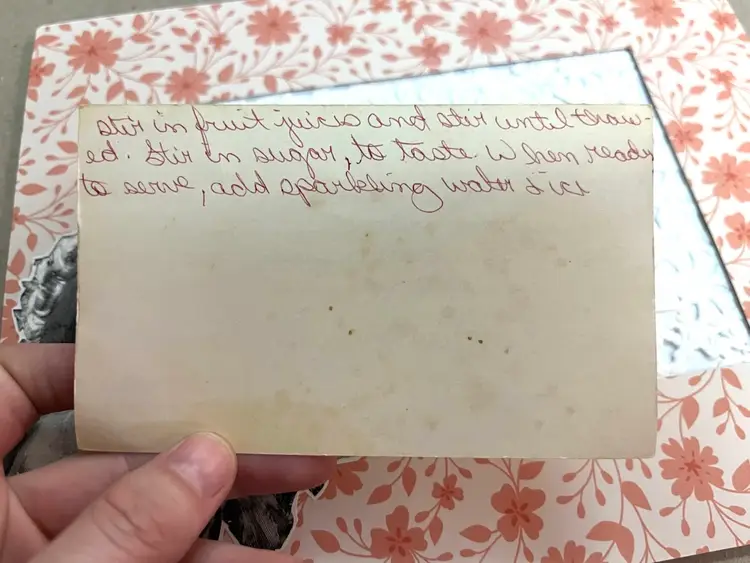 Stir in fruit juices and stir until thaw-
ed. Stir in sugar, to taste. When ready
to serve, add sparkling water & ice